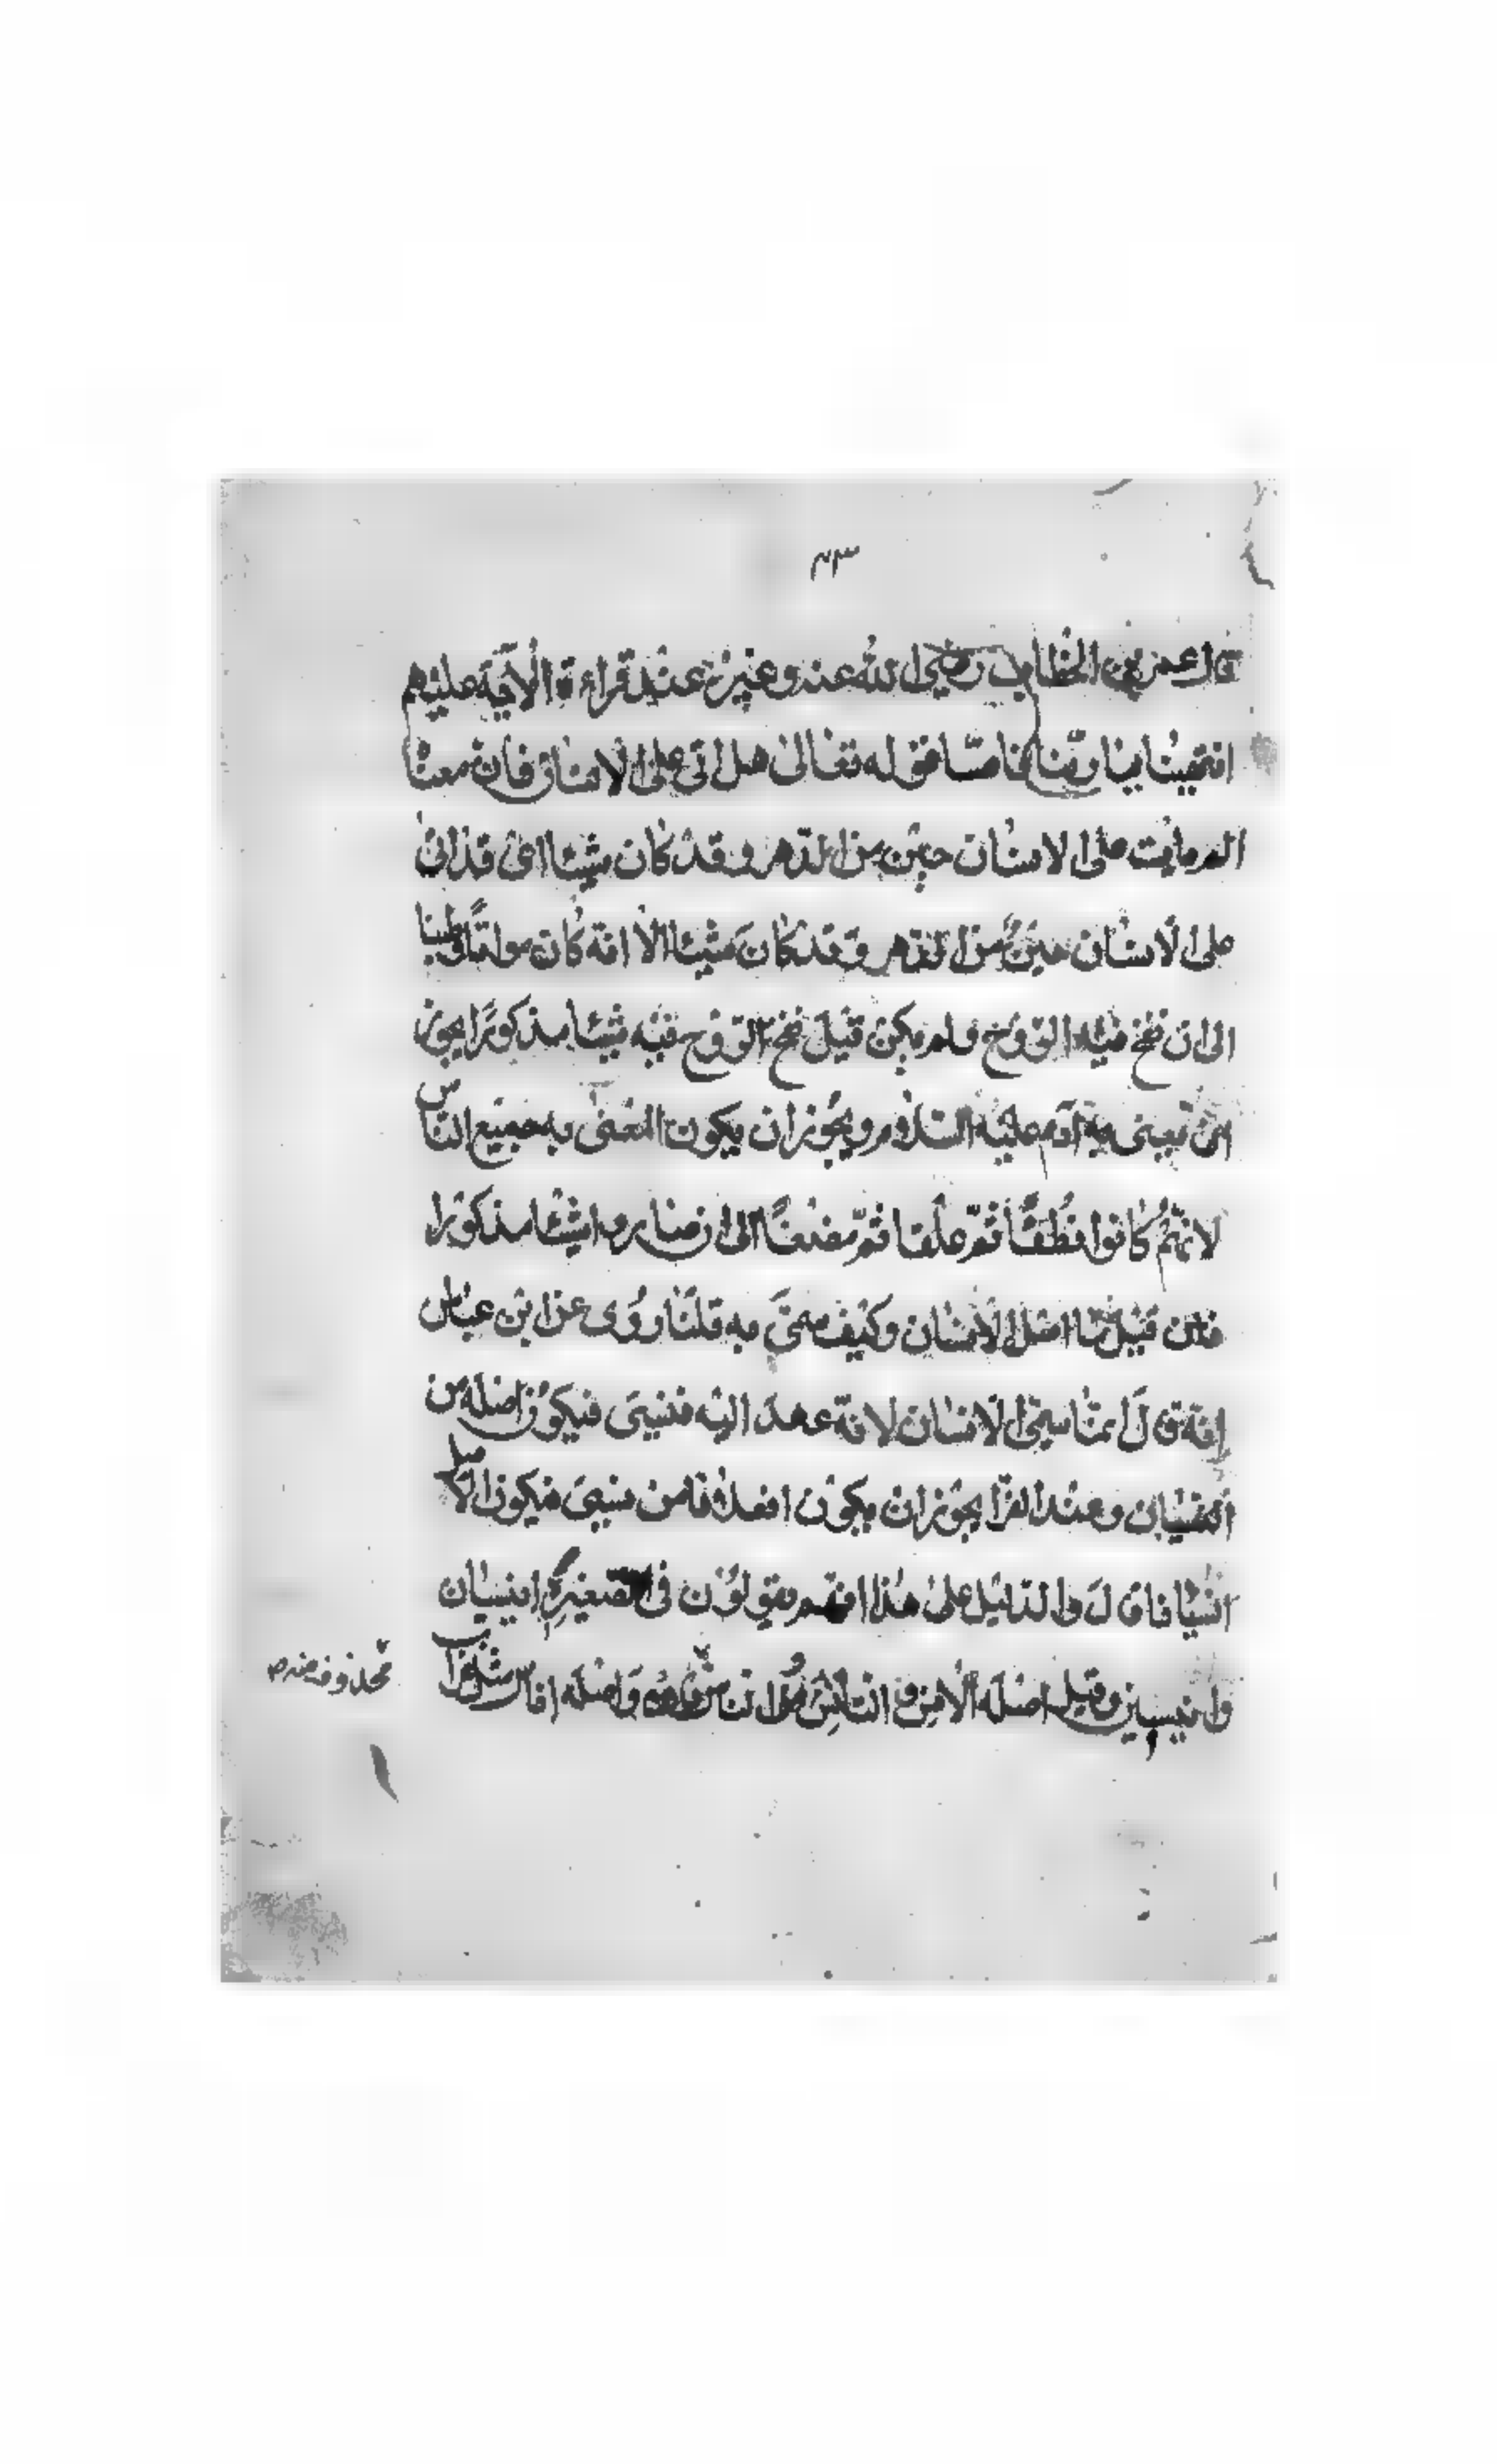 ٤٣
قال عمر بن الخطاب رضي الله عنه وغيره عند قراءة الآية عليهم
انتهينا يا ربنا فاما قوله تعالى هل اتى على الانسان فان معناه
الم يات على الانسان حين من الدهر وقد كان شيئا اى قد اتى
على الانسان حين من الدهر وقد كان شيئا الا انه كان مواتا وطينا
الى ان نفخ فيه الروح ولم يكن قبل نفخ الروح فيه شيئا مذكورا يجوز
ان يعنى به آدم عليه السلام ويجوز ان يكون المعنى به جميع الناس
لانهم كانوا نطفا ثم علقا ثم مضغا الى ان صاروا شيئا مذكورا
فان قيل ما اصل الانسان وكيف سمى به قلنا روى عن ابن عباس
انه قال انما سمى الانسان لانه عهد اليه فنسى فيكون اصله من
النسيان وعند الفرا يجوز ان يكون افعلانا من نسى فيكون الاصل
انسيانا قال والدليل على هذا انهم يقولون فى تصغيره انيسيان
وانيسين وقيل اصله الانس و الناس واصله اناس
محذوف منه